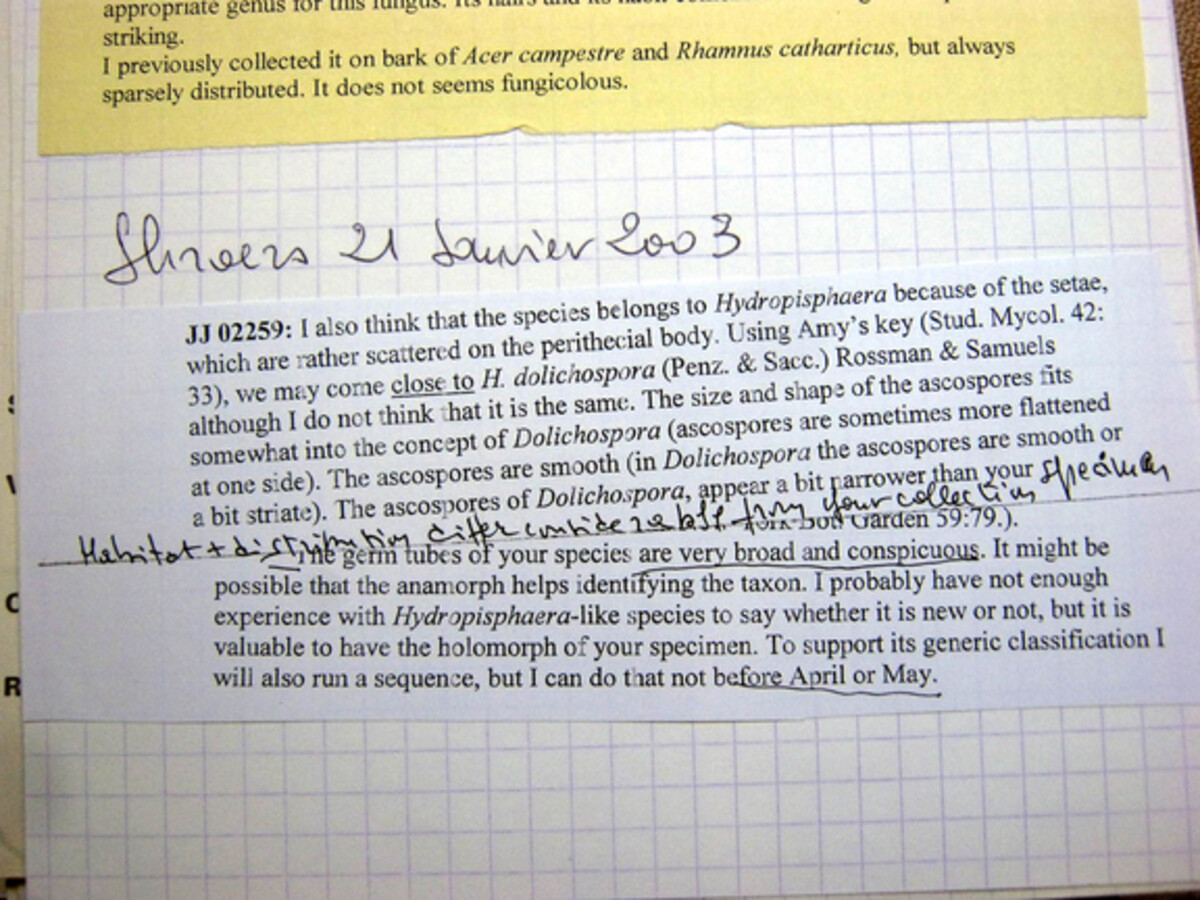 appropriate genus for this fungus. Its hairs and its
striking.
I previously collected it on bark of Acer campestre and Rhamnus catharticus, but always
sparsely distributed. It does not seems fungicolous.
Shroers 21 Janvier 2003
JJ 02259: I also think that the species belongs to Hydropisphaera because of the setae,
which are rather scattered on the perithecial body. Using Amy's key (Stud. Mycol. 42:
33), we may come close to H. dolichospora (Penz. & Sacc.) Rossman & Samuels
although I do not think that it is the same. The size and shape of the ascospores fits
somewhat into the concept of Dolichospora (ascospores are sometimes more flattened
at one side). The ascospores are smooth (in Dolichospora the ascospores are smooth or
a bit striate). The ascospores of Dolichospora, appear a bit narrower than your specimen
Habitat + distribution differ considerably from your collection
Garden 59:79.).
The germ tubes of your species are very broad and conspicuous. It might be
possible that the anamorph helps identifying the taxon. I probably have not enough
experience with Hydropisphaera-like species to say whether it is new or not, but it is
valuable to have the holomorph of your specimen. To support its generic classification I
will also run a sequence, but I can do that not before April or May.